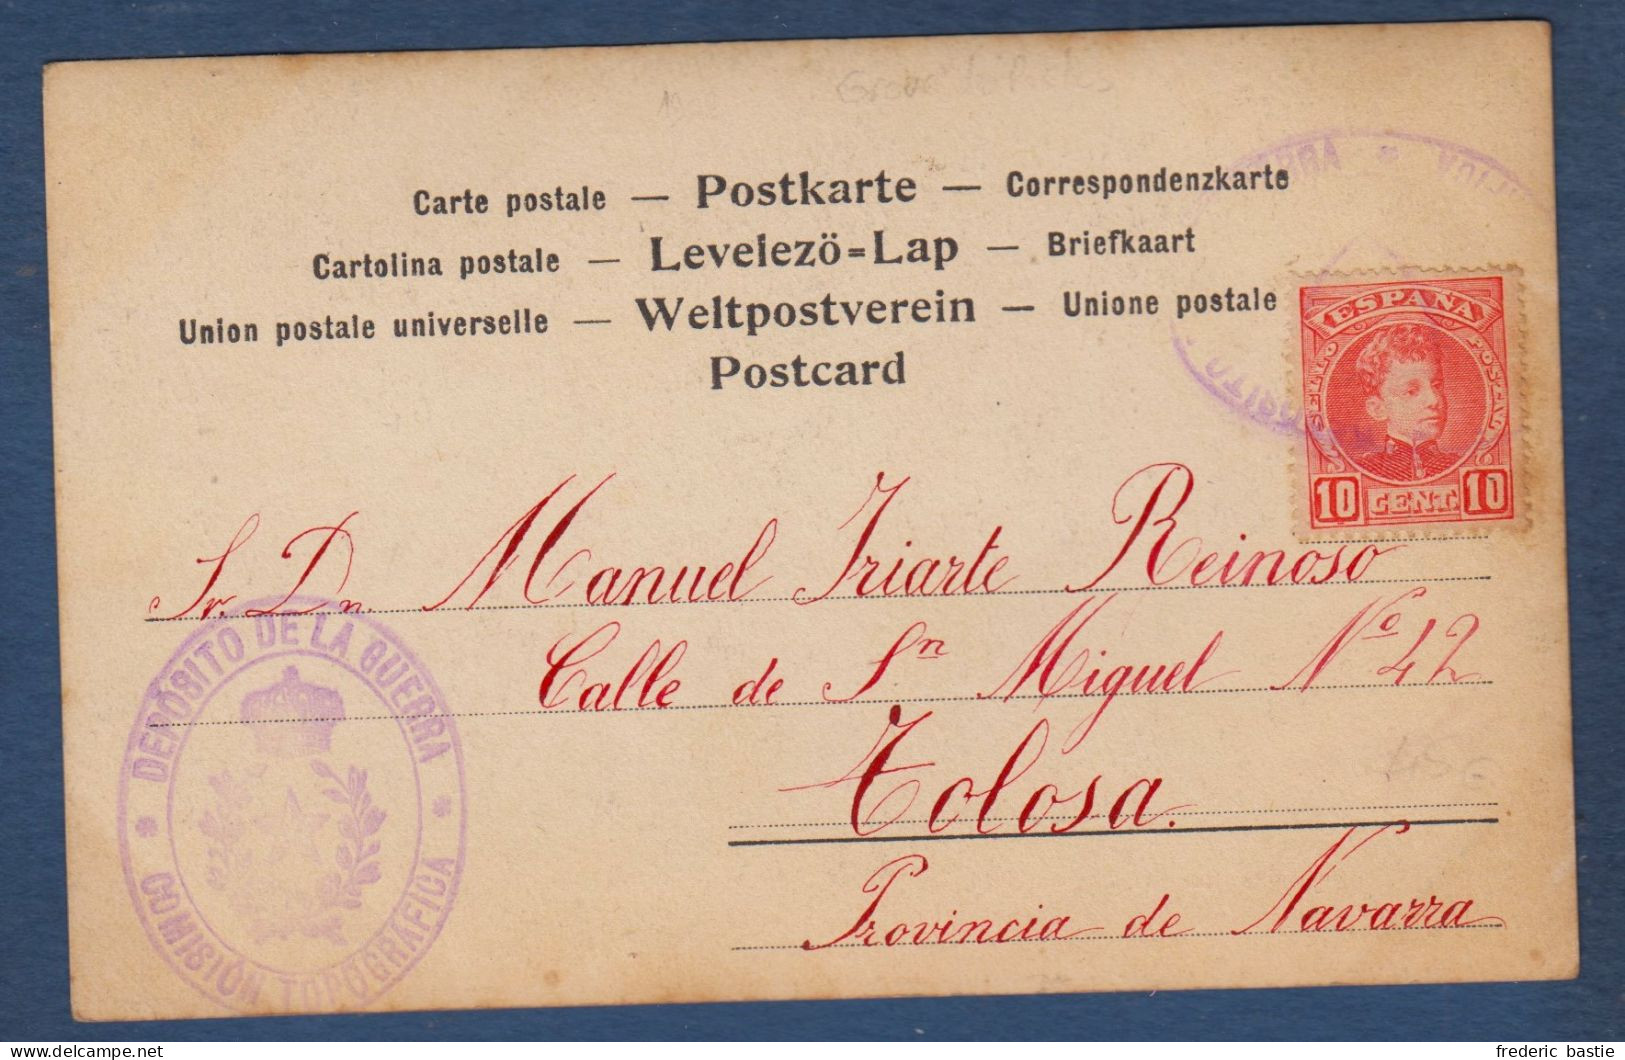 Carte postale — Postkarte — Correspondenzkarte
Cartolina postale — Levelezö=Lap — Briefkaart
Union postale universelle — Weltpostverein — Unione postale
Postcard
ESPAÑA
10 CENT. 10
Sr. Dn. Manuel Iriarte Reinoso
Calle de Sn Miguel Nº 42
Tolosa.
Provincia de Navarra
* DEPÓSITO DE LA GUERRA *
COMISIÓN TOPOGRÁFICA
delcampe.net
frederic bastie